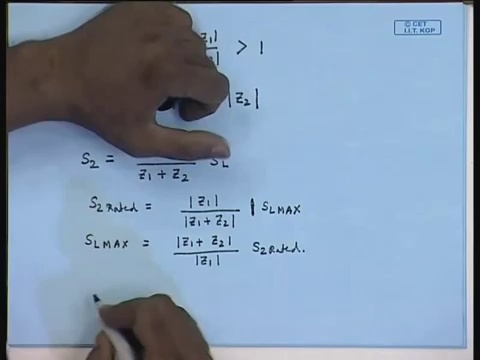 © CET
I.I.T. KGP
|Z₁| > 1
|Z₂|
S₂ = / (Z₁ + Z₂) S_L
S₂ Rated = |Z₁| / |Z₁ + Z₂| | S_L MAX
S_L MAX = |Z₁ + Z₂| / |Z₁| S₂ Rated.